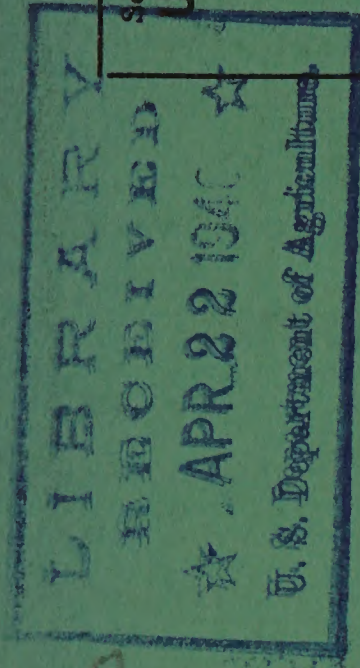 LIBRARY
RECEIVED
☆ APR 22 1940 ☆
U. S. Department of Agriculture